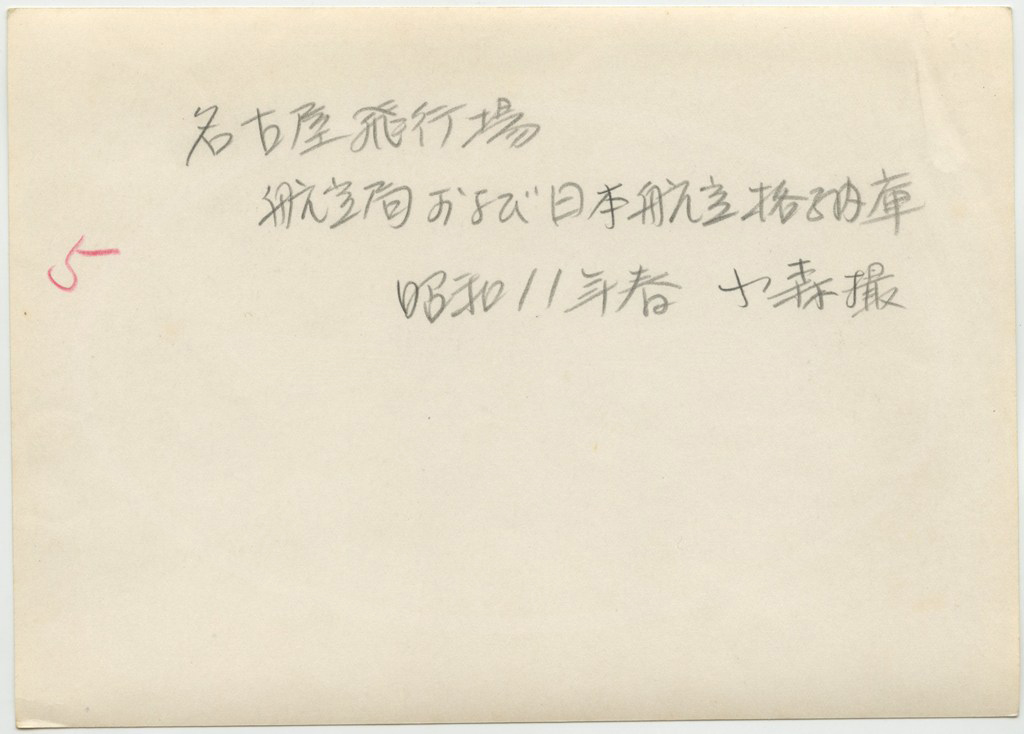 名古屋飛行場
航空局および日本航空格納庫
5
昭和11年春 小森撮